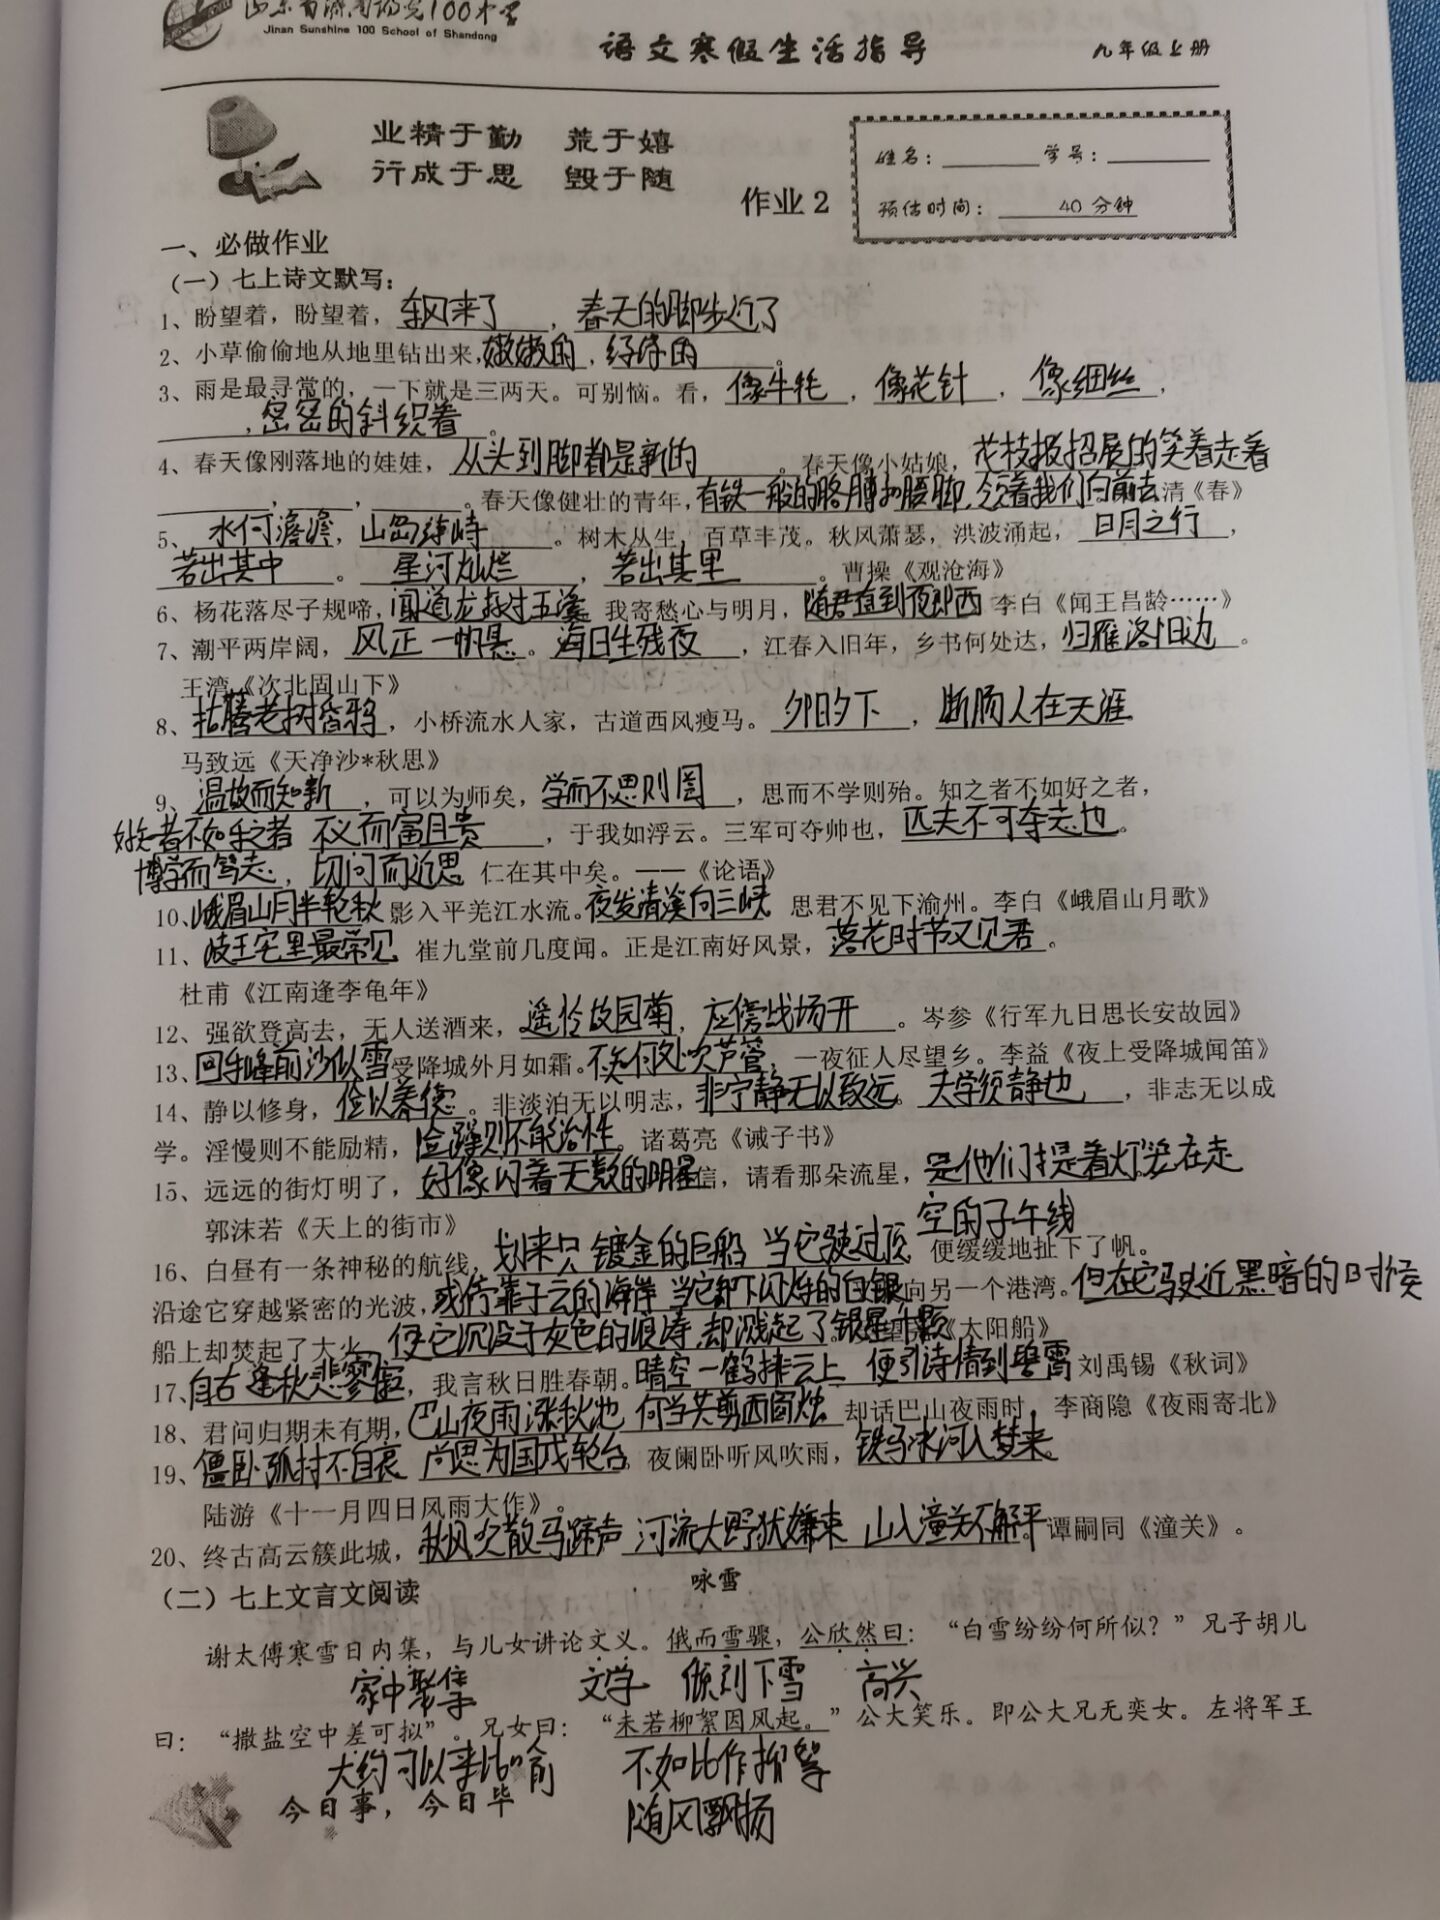 山东省济南阳光100中学
Jinan Sunshine 100 School of Shandong
语文寒假生活指导
九年级上册
业精于勤 荒于嬉
行成于思 毁于随
作业2
姓名： 学号：
预估时间： 40分钟
一、必做作业
（一）七上诗文默写：
1、盼望着，盼望着，东风来了，春天的脚步近了
2、小草偷偷地从地里钻出来，嫩嫩的，绿绿的。
3、雨是最寻常的，一下就是三两天。可别恼。看，像牛牦，像花针，像细丝，
，密密的斜织着。
4、春天像刚落地的娃娃，从头到脚都是新的。春天像小姑娘，花枝报招展的笑着走着
，，。春天像健壮的青年，有铁一般的胳膊和腰脚，领着我们向前去清《春》
5、水何澹澹，山岛竦峙。树木丛生，百草丰茂。秋风萧瑟，洪波涌起，日月之行，
若出其中。星河灿烂，若出其里。曹操《观沧海》
6、杨花落尽子规啼，闻道龙标过五溪 我寄愁心与明月，随君直到夜郎西 李白《闻王昌龄……》
7、潮平两岸阔，风正一帆悬。海日生残夜，江春入旧年，乡书何处达，归雁洛阳边。
王湾《次北固山下》
8、枯藤老树昏鸦，小桥流水人家，古道西风瘦马。夕阳夕下，断肠人在天涯
马致远《天净沙*秋思》
9、温故而知新，可以为师矣，学而不思则罔，思而不学则殆。知之者不如好之者，
好之者不如乐之者 不义而富且贵，于我如浮云。三军可夺帅也，匹夫不可夺志也。
博学而笃志，切问而近思 仁在其中矣。——《论语》
10、峨眉山月半轮秋 影入平羌江水流。夜发清溪向三峡 思君不见下渝州。李白《峨眉山月歌》
11、岐王宅里最常见 崔九堂前几度闻。正是江南好风景，落花时节又见君。
杜甫《江南逢李龟年》
12、强欲登高去，无人送酒来，遥怜故园菊，应傍战场开。岑参《行军九日思长安故园》
13、回乐峰前沙似雪 受降城外月如霜。不知何处吹芦管，一夜征人尽望乡。李益《夜上受降城闻笛》
14、静以修身，俭以养德。非淡泊无以明志，非宁静无以致远。夫学须静也，非志无以成
学。淫慢则不能励精，险躁则不能治性。诸葛亮《诫子书》
15、远远的街灯明了，好像闪着无数的明星信，请看那朵流星，是他们提着灯笼在走
郭沫若《天上的街市》
空的子午线
16、白昼有一条神秘的航线，划来只镀金的巨船 当它驶过顶 便缓缓地扯下了帆。
沿途它穿越紧密的光波，或停靠于云的海岸 当它卸下闪烁的白银 向另一个港湾。但在它驶近黑暗的时候
船上却焚起了大火 使它沉没于灰色的浪涛 却溅起了银星千颗《太阳船》
17、自古逢秋悲寂寥，我言秋日胜春朝。晴空一鹤排云上 便引诗情到碧霄 刘禹锡《秋词》
18、君问归期未有期，巴山夜雨涨秋池 何当共剪西窗烛 却话巴山夜雨时，李商隐《夜雨寄北》
19、僵卧孤村不自哀 尚思为国戍轮台 夜阑卧听风吹雨，铁马冰河入梦来。
陆游《十一月四日风雨大作》。
20、终古高云簇此城，秋风吹散马蹄声 河流大野犹嫌束 山入潼关不解平 谭嗣同《潼关》。
（二）七上文言文阅读
咏雪
谢太傅寒雪日内集，与儿女讲论文义。俄而雪骤，公欣然曰：“白雪纷纷何所似？”兄子胡儿
家中聚集 文学 倾刻下雪 高兴
曰：“撒盐空中差可拟”。兄女曰：“未若柳絮因风起。”公大笑乐。即公大兄无奕女。左将军王
大约可以来比喻 不如比作柳絮
今日事，今日毕
随风飘扬